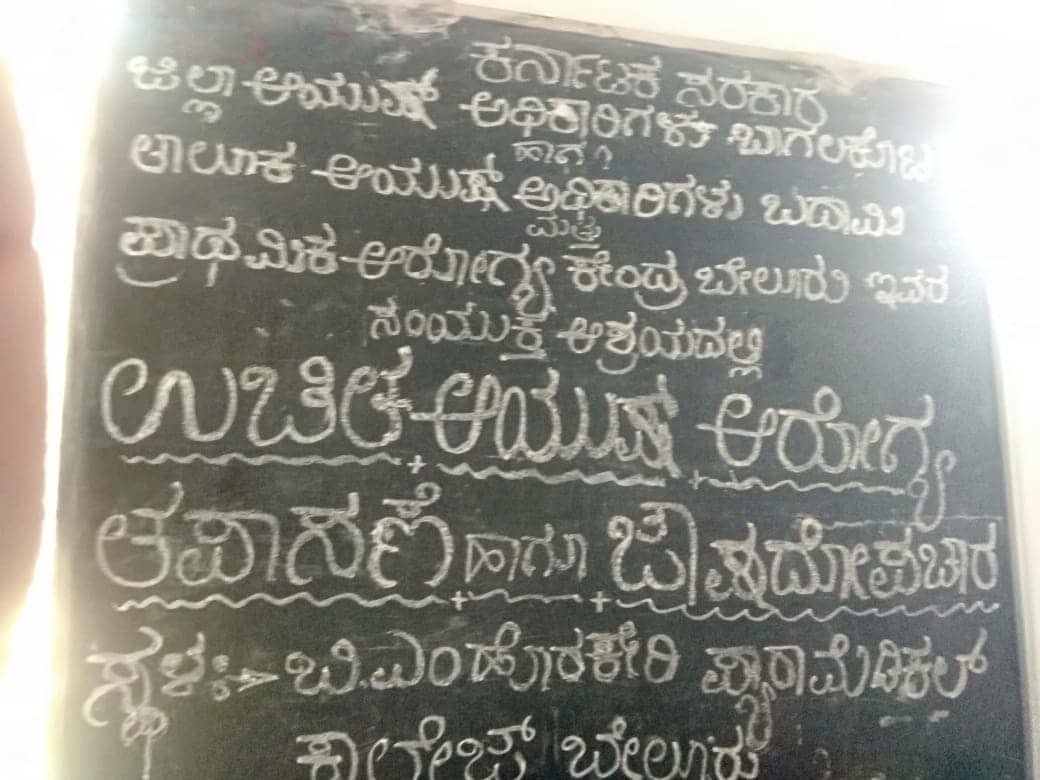 ಕರ್ನಾಟಕ ಸರಕಾರ
ಜಿಲ್ಲಾ ಆಯುಷ್ ಅಧಿಕಾರಿಗಳು ಬಾಗಲಕೋಟ
ಹಾಗೂ
ತಾಲೂಕ ಆಯುಷ್ ಅಧಿಕಾರಿಗಳು ಬದಾಮಿ
ಮತ್ತು
ಪ್ರಾಥಮಿಕ ಆರೋಗ್ಯ ಕೇಂದ್ರ ಬೇಲೂರು ಇವರ
ಸಂಯುಕ್ತ ಆಶ್ರಯದಲ್ಲಿ
ಉಚಿತ ಆಯುಷ್ ಆರೋಗ್ಯ
ತಪಾಸಣೆ ಹಾಗೂ ಔಷಧೋಪಚಾರ
ಸ್ಥಳ:-> ಬಿ.ಎಂ ಹೊರಕೇರಿ ಪ್ಯಾರಾಮೆಡಿಕಲ್
ಕಾಲೇಜ್ ಬೇಲೂರು